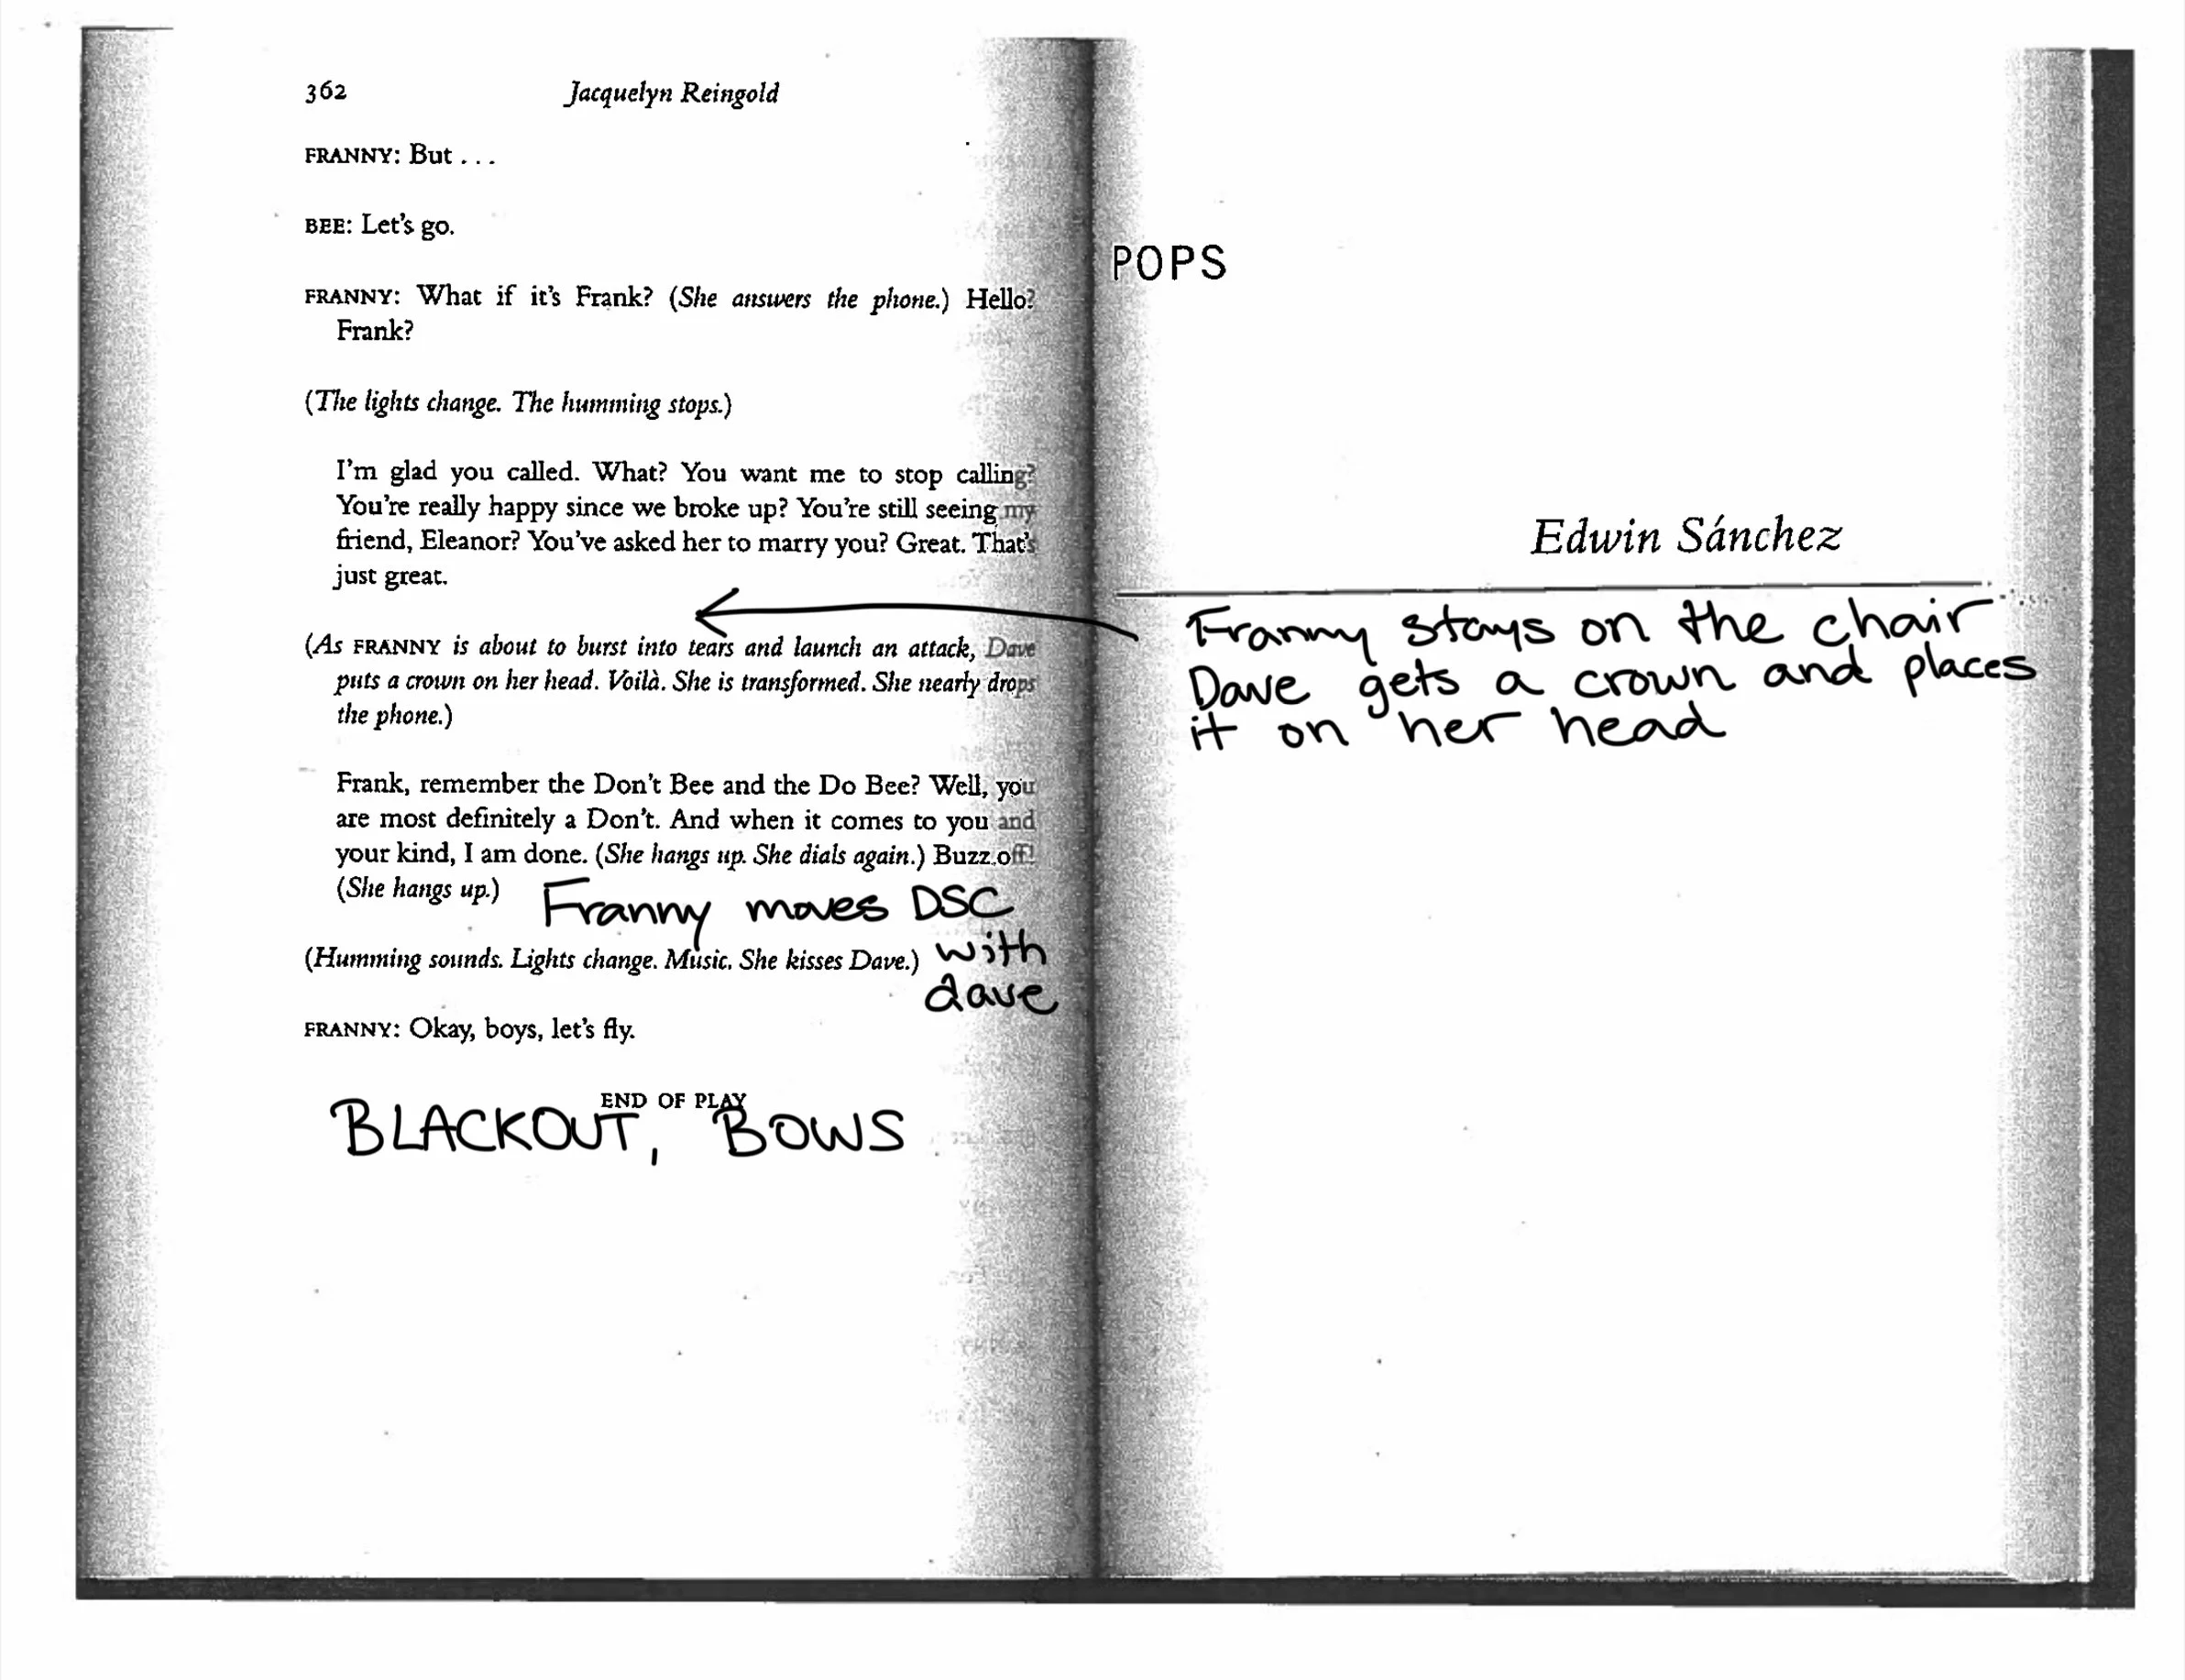 362 Jacquelyn Reingold
FRANNY: But . . .
BEE: Let's go.
FRANNY: What if it's Frank? (She answers the phone.) Hello?
Frank?
(The lights change. The humming stops.)
I'm glad you called. What? You want me to stop calling?
You're really happy since we broke up? You're still seeing my
friend, Eleanor? You've asked her to marry you? Great. That's
just great.
(As FRANNY is about to burst into tears and launch an attack, Dave
puts a crown on her head. Voilà. She is transformed. She nearly drops
the phone.)
Frank, remember the Don't Bee and the Do Bee? Well, you
are most definitely a Don't. And when it comes to you and
your kind, I am done. (She hangs up. She dials again.) Buzz off!
(She hangs up.)
Franny moves DSC
with
dave
(Humming sounds. Lights change. Music. She kisses Dave.)
FRANNY: Okay, boys, let's fly.
END OF PLAY
BLACKOUT, BOWS
POPS
Edwin Sánchez
Franny stays on the chair
Dave gets a crown and places
it on her head